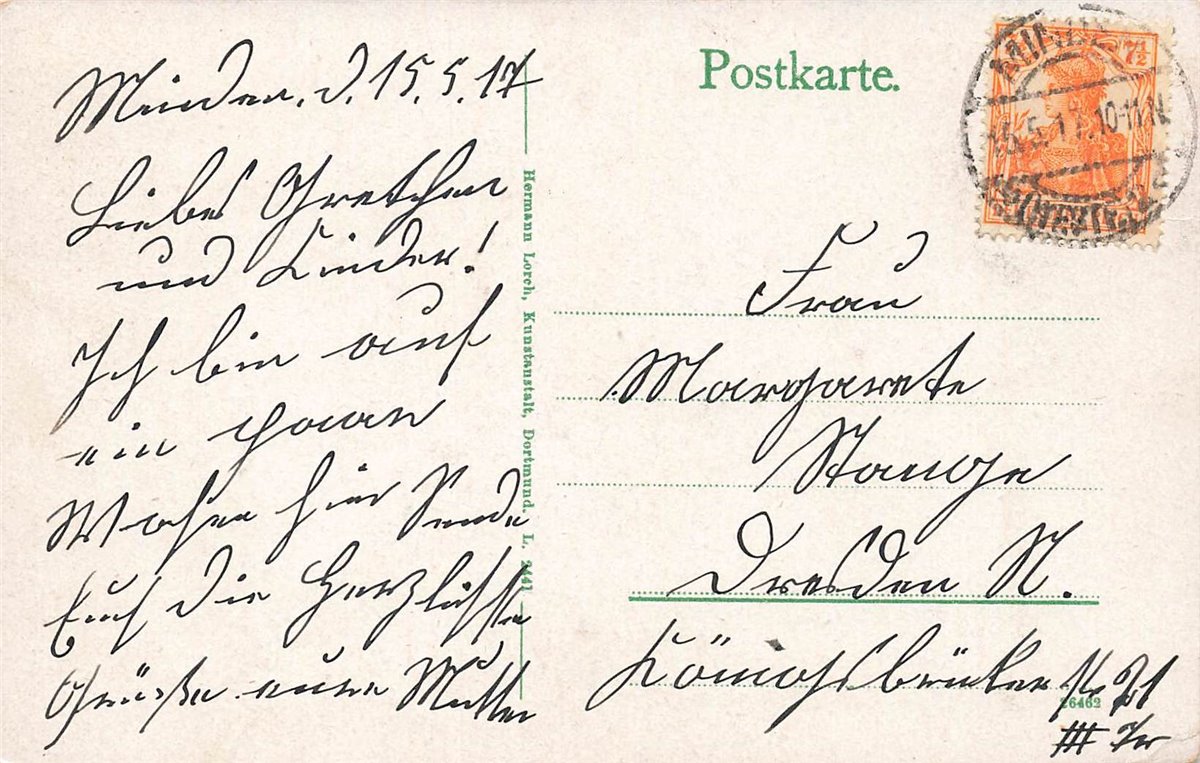 Minden, d. 15. 5. 17
Liebes Gretchen
und Kinder!
Ich bin auf
ein paar
Wochen hier Sende
Euch die Herzlichste
Grüße eure Mutter
Hermann Lorch, Kunstanstalt, Dortmund. L. 2441
Postkarte.
7½
15.5.17.10-11
Frau
Margarete
Stange
Dresden N.
Königsbrücker 21
26462
III